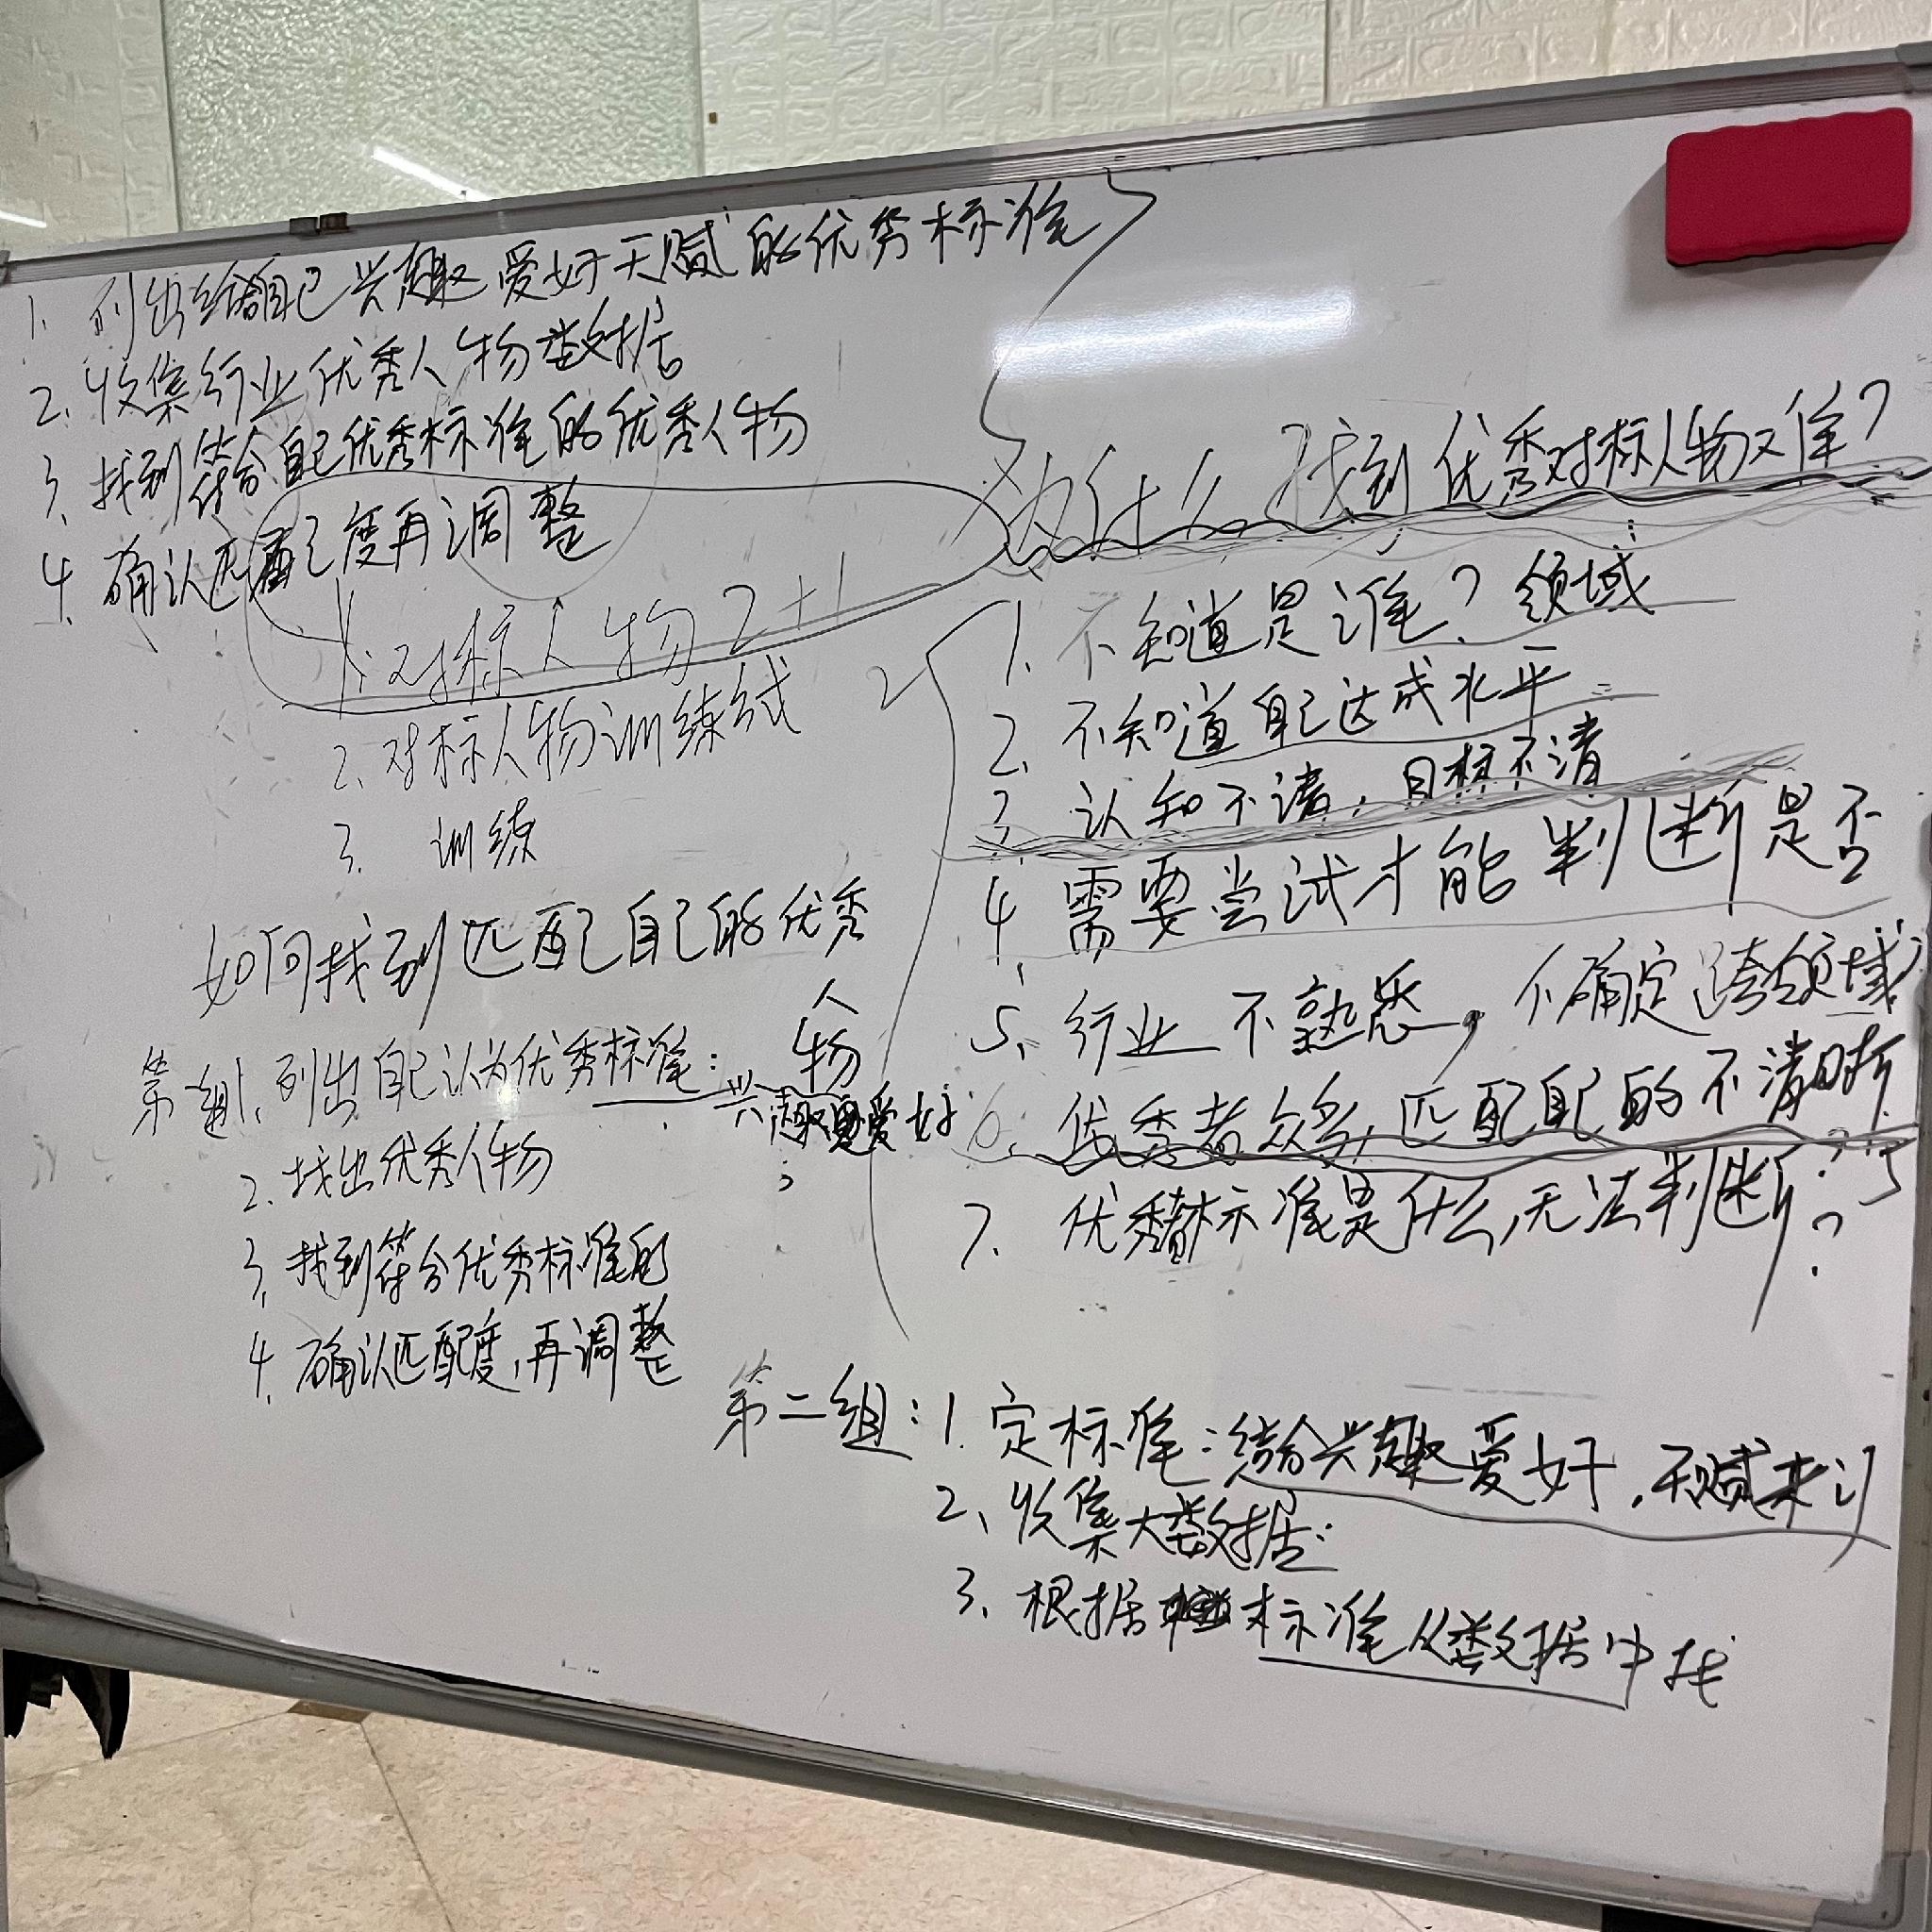 1. 列出结合自己兴趣爱好天赋的优秀标准
2. 收集行业优秀人物数据
3. 找到符合自己优秀标准的优秀人物
4. 确认匹配度再调整
1. 对标人物2+1
2. 对标人物训练
3. 训练
如何找到匹配自己的优秀
人物
第组1. 列出自己认为优秀标准:兴趣爱好
2. 找出优秀人物
3. 找到符合优秀标准的
4. 确认匹配度,再调整
为什么找到优秀对标人物难?
1. 不知道是谁?领域
2. 不知道自己达成水平
3. 认知不清,目标不清
4. 需要尝试才能判断是否
5. 行业不熟悉,不确定跨领域
6. 优秀者众多,匹配自己的不清晰
7. 优秀标准是什么,无法判断?
第二组:1. 定标准:结合兴趣爱好,天赋来
2. 收集大数据
3. 根据标准从数据中找